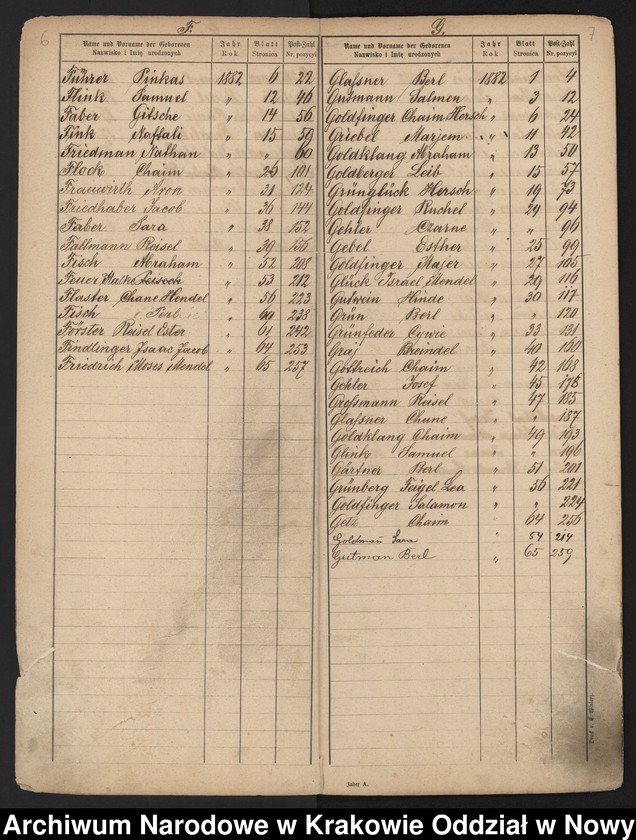 6
F.
Name und Vorname der Geborenen
Nazwisko i Imię urodzonych
Jahr
Rok
Blatt
Stronica
Post-Zahl
Nr. pozycyi
Führer Pinkas 1882 6 22
Flink Samuel " 12 46
Faber Gitsche " 14 56
Fink Naftali " 15 59
Friedman Nathan " " 60
Flock Chaim " 101
Frauwirth Aron " 31 124
Friedhaber Jacob " 36 144
Faber Sara " 38 152
Fallmann Reisel " 39 156
Fisch Abraham " 52 208
Feuer " 53 212
Flaster Chane Hendel " 56 223
Fisch Perl " 60 238
Förster Reisel Ester " 61 242
Findlinger Isaac Jacob " 64 253
Friedrich Moses Mendel " 65 257
7
G.
Name und Vorname der Geborenen
Nazwisko i Imię urodzonych
Jahr
Rok
Blatt
Stronica
Post-Zahl
Nr. pozycyi
Glassner Berl 1882 1 4
Gutmann Salmen " 3 12
Goldfinger Chaim Hersch " 6 24
Griebel Marjem " 11 42
Goldklang Abraham " 13 50
Goldberger Leib " 15 57
Grünglück Hersch " 19 73
Goldfinger Ruchel " 24 94
Gehler Czarne " " 96
Gebel Esther " 25 99
Goldfinger Majer " 27 105
Glück Israel Mendel " 29 116
Gutwein Hinde " 30 117
Grün Berl " " 120
Grünfeder Cywie " 33 131
Graj Breindel " 40 160
Gottreich Chaim " 42 168
Gehler Josef " 45 178
Grossmann Reisel " 47 185
Glassner Chune " " 187
Goldklang Chaim " 49 193
Glink Samuel " " 196
Gärtner Berl " 51 201
Grünberg Feigel Lea " 56 221
Goldfinger Salamon " " 224
Getz Chaim " 64 256
Goldman Sara " 54 214
Gutman Berl " 65 259
Index A.
Archiwum Narodowe w Krakowie Oddział w Nowy